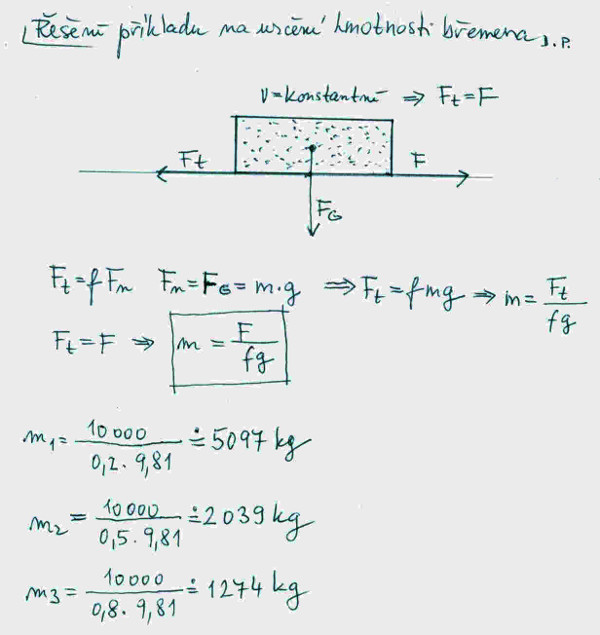 Řešení příkladu na určení hmotnosti břemena J.P.
v=konstantní ⇒ Ft=F
Ft F
FG
Ft=fFn Fn=FG=m·g ⇒Ft=fmg⇒m=Ft/fg
Ft=F ⇒ m=F/fg
m1=10000/0,2·9,81≐5097 kg
m2=10000/0,5·9,81≐2039 kg
m3=10000/0,8·9,81≐1274 kg